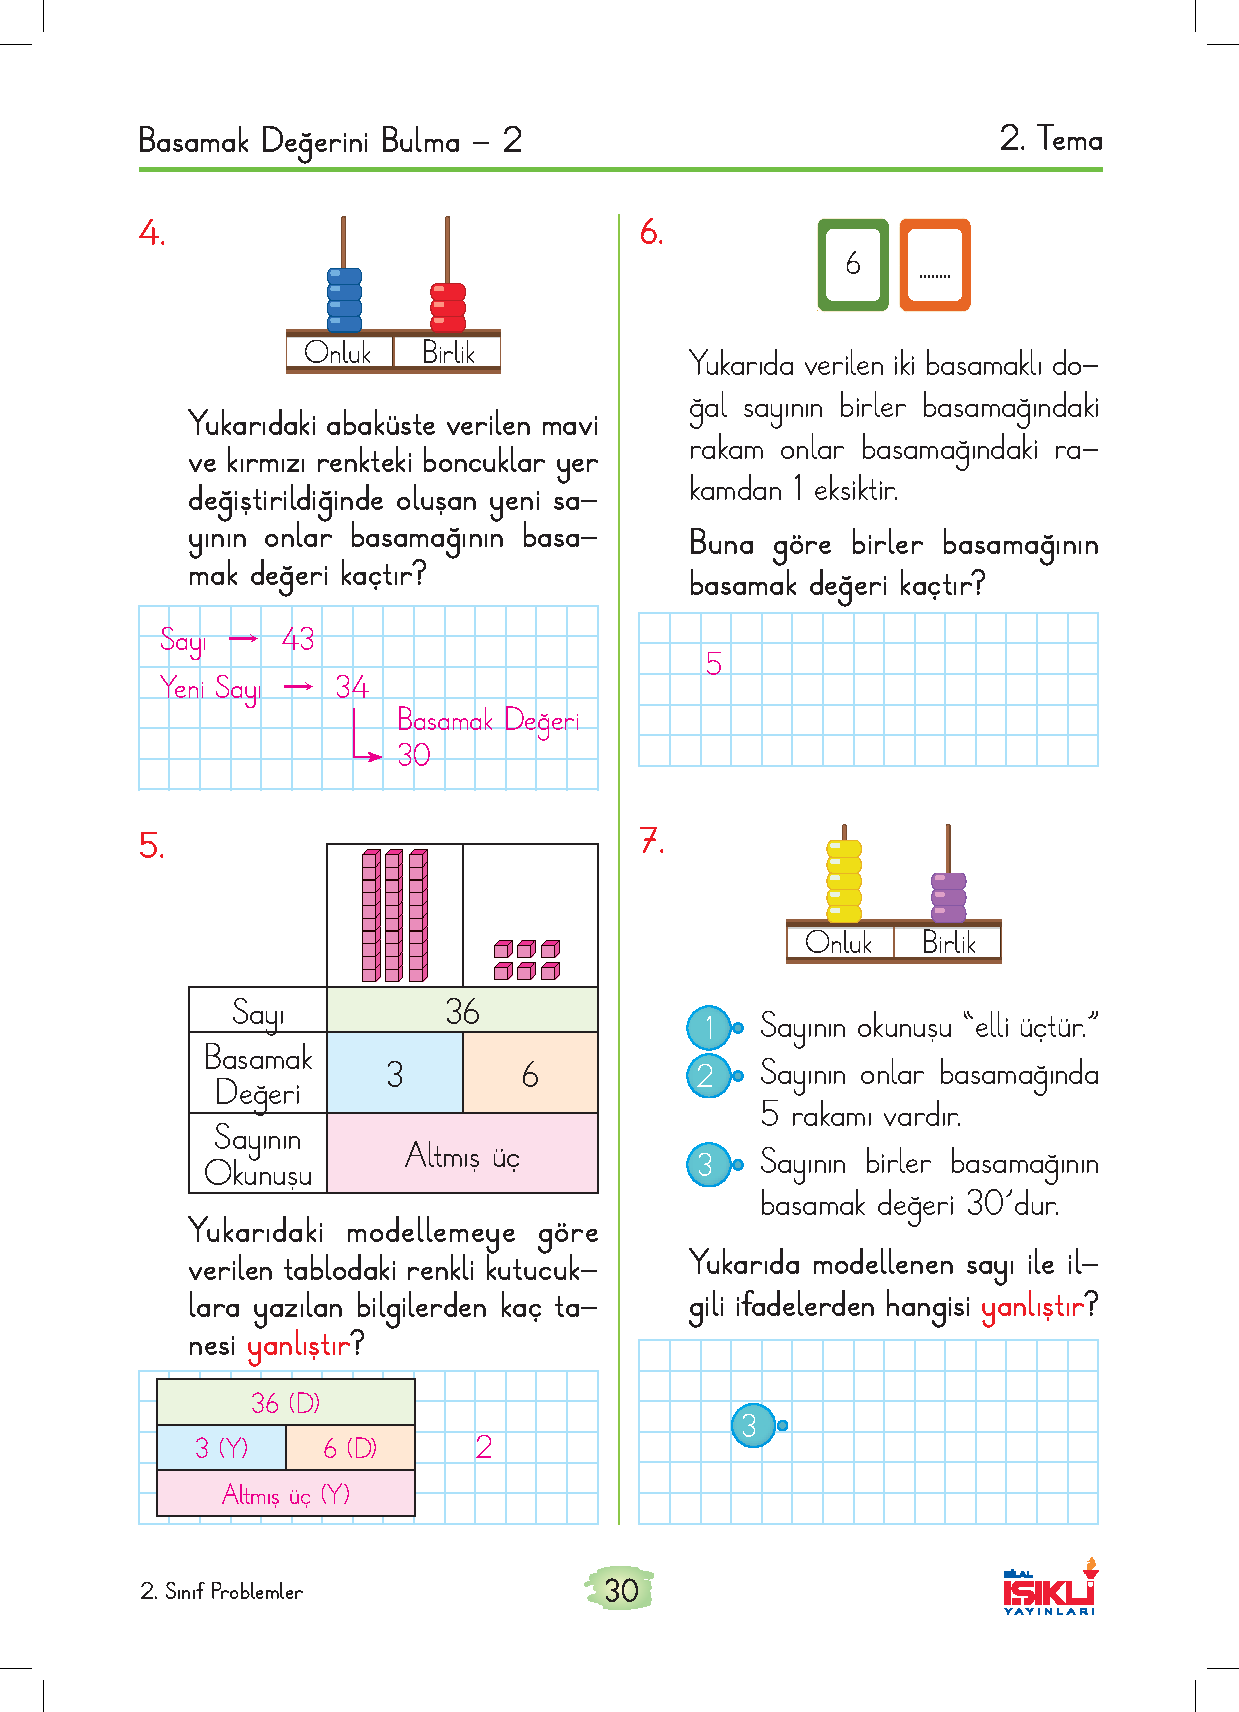 Basamak Değerini Bulma – 2
2. Tema
4.
Onluk Birlik
Yukarıdaki abaküste verilen mavi
ve kırmızı renkteki boncuklar yer
değiştirildiğinde oluşan yeni sa-
yının onlar basamağının basa-
mak değeri kaçtır?
Sayı → 43
Yeni Sayı → 34
Basamak Değeri
30
5.
Sayı 36
Basamak
Değeri
3 6
Sayının
Okunuşu
Altmış üç
Yukarıdaki modellemeye göre
verilen tablodaki renkli kutucuk-
lara yazılan bilgilerden kaç ta-
nesi yanlıştır?
36 (D)
3 (Y) 6 (D) 2
Altmış üç (Y)
6.
6 ........
Yukarıda verilen iki basamaklı do-
ğal sayının birler basamağındaki
rakam onlar basamağındaki ra-
kamdan 1 eksiktir.
Buna göre birler basamağının
basamak değeri kaçtır?
5
7.
Onluk Birlik
1 Sayının okunuşu “elli üçtür.”
2 Sayının onlar basamağında
5 rakamı vardır.
3 Sayının birler basamağının
basamak değeri 30’dur.
Yukarıda modellenen sayı ile il-
gili ifadelerden hangisi yanlıştır?
3
2. Sınıf Problemler
30
BİLAL
IŞIKLI
YAYINLARI